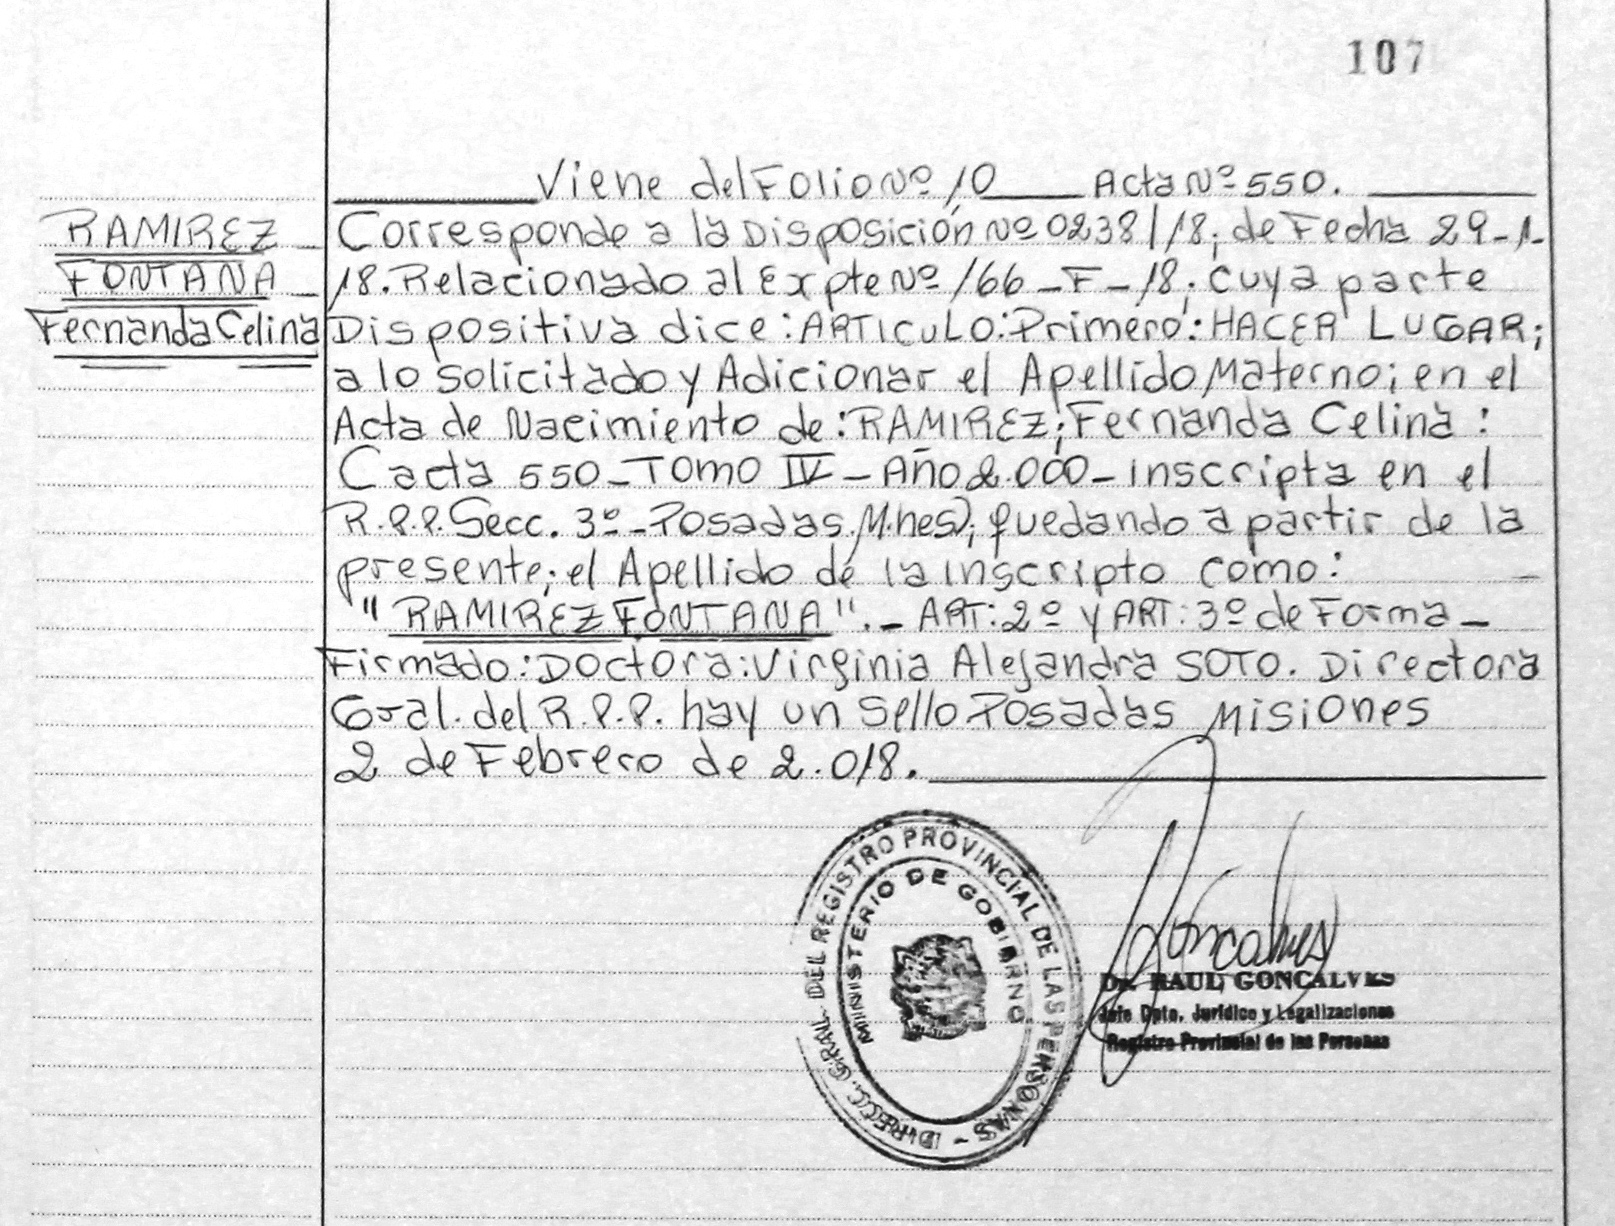 107
Viene del Folio Nº 10 Acta Nº 550.
RAMIREZ
FONTANA
Fernanda Celina
Corresponde a la Disposición Nº 0238/18; de Fecha 29-1-
18. Relacionado al Expte Nº 166-F-18; cuya parte
Dispositiva dice: ARTICULO: Primero: HACER LUGAR;
a lo solicitado y Adicionar el Apellido Materno; en el
Acta de Nacimiento de: RAMIREZ; Fernanda Celina:
(acta 550-Tomo IV-Año 2.000-inscripta en el
R.P.P. Secc. 3º-Posadas. M.nes); quedando a partir de la
presente; el Apellido de la inscripto como:
"RAMIREZ FONTANA".- ART: 2º y ART: 3º de Forma-
Firmado: Doctora: Virginia Alejandra SOTO. Directora
Gral. del R.P.P. hay un Sello Posadas Misiones
2 de Febrero de 2.018.
DIRECC. GRAL. DEL REGISTRO PROVINCIAL DE LAS PERSONAS -
MINISTERIO DE GOBIERNO
Goncalves
Dr. RAUL GONCALVES
Jefe Dpto. Jurídico y Legalizaciones
Registro Provincial de las Personas